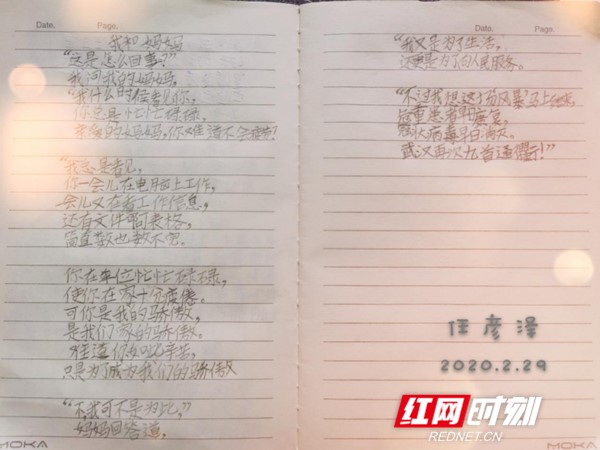 Date.
Page.
我和妈妈
“这是怎么回事？”
我问我的妈妈，
“我什么时候看见你，
你总是忙忙碌碌。
亲爱的妈妈，你难道不会疲劳？
“我总是看见，
你一会儿在电脑上工作，
一会儿又在看工作信息，
还有文件啊表格，
简直数也数不完。
你在单位忙忙碌碌，
使你在家十分疲倦。
可你是我的骄傲，
是我们家的骄傲。
难道你如此辛苦，
只是为了成为我们的骄傲
“不，我可不是为此，”
妈妈回答道，
MOKA
Date.
Page.
“我又是为了生活，
这更是为了向人民服务。
“不过我想这个场风暴马上结束，
危重患者早康复，
恶火病毒早日消灭。
武汉再次九省通衢！”
任彦泽
2020.2.29
红网时刻
REDNET.CN
MOKA